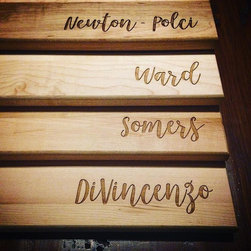 Newton - Polci
Ward
Somers
DiVincenzo